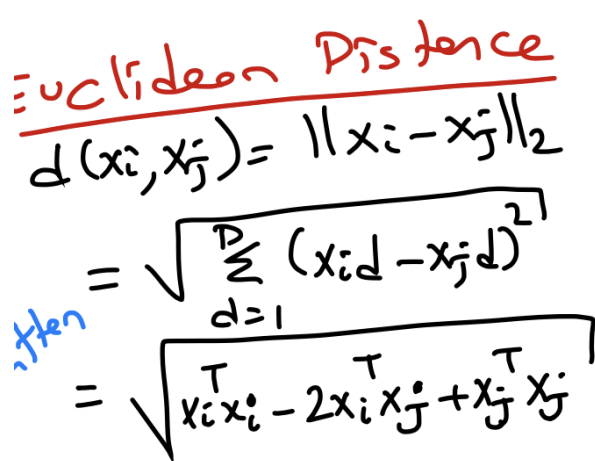 Euclidean Distance
d(xi, xj) = ||xi - xj||2
= √ D Σ d=1 (xid - xjd)²
= √ xiᵀxi - 2xiᵀxj + xjᵀxj